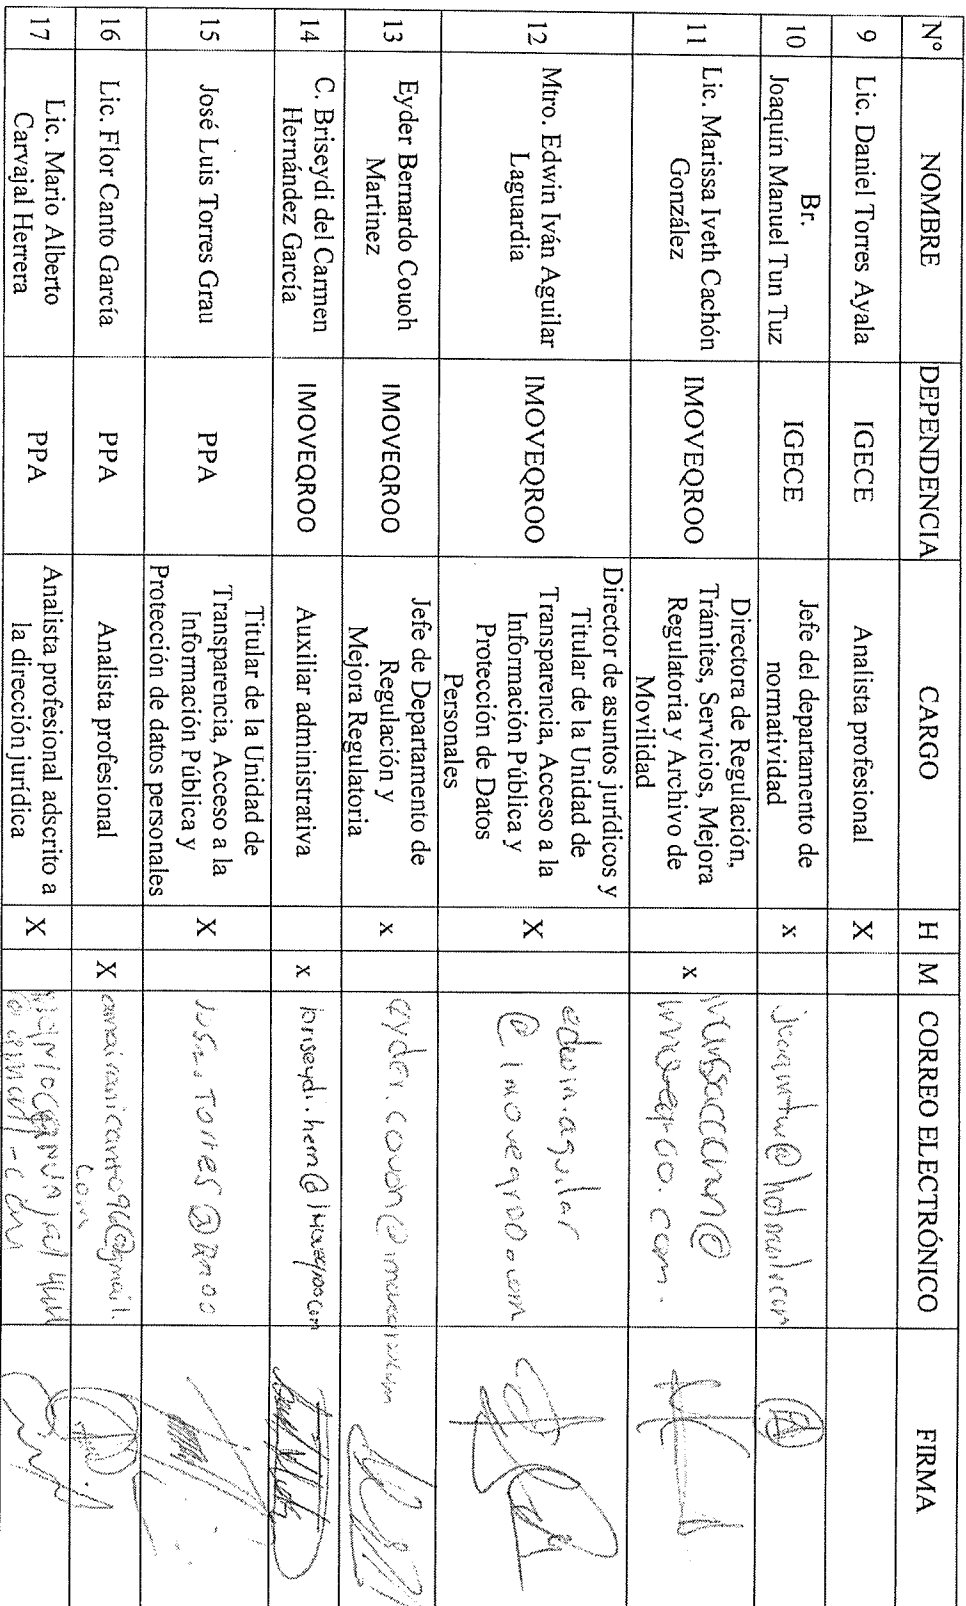 N° NOMBRE DEPENDENCIA CARGO H M CORREO ELECTRÓNICO FIRMA
9 Lic. Daniel Torres Ayala IGECE Analista profesional X
10 Br.
Joaquín Manuel Tun Tuz IGECE Jefe del departamento de
normatividad x
11 Lic. Marissa Iveth Cachón
González IMOVEQROO Directora de Regulación,
Trámites, Servicios, Mejora
Regulatoria y Archivo de
Movilidad x
imoveqroo.com.
12 Mtro. Edwin Iván Aguilar
Laguardia IMOVEQROO Director de asuntos jurídicos y
Titular de la Unidad de
Transparencia, Acceso a la
Información Pública y
Protección de Datos
Personales X edwin.aguilar
@imoveqroo.com
13 Eyder Bernardo Couoh
Martinez IMOVEQROO Jefe de Departamento de
Regulación y
Mejora Regulatoria x
14 C. Briseydi del Carmen
Hernández García IMOVEQROO Auxiliar administrativa x briseydi.hern@imoveqroo.com
15 José Luis Torres Grau PPA Titular de la Unidad de
Transparencia, Acceso a la
Información Pública y
Protección de datos personales X
16 Lic. Flor Canto García PPA Analista profesional X
17 Lic. Mario Alberto
Carvajal Herrera PPA Analista profesional adscrito a
la dirección jurídica X